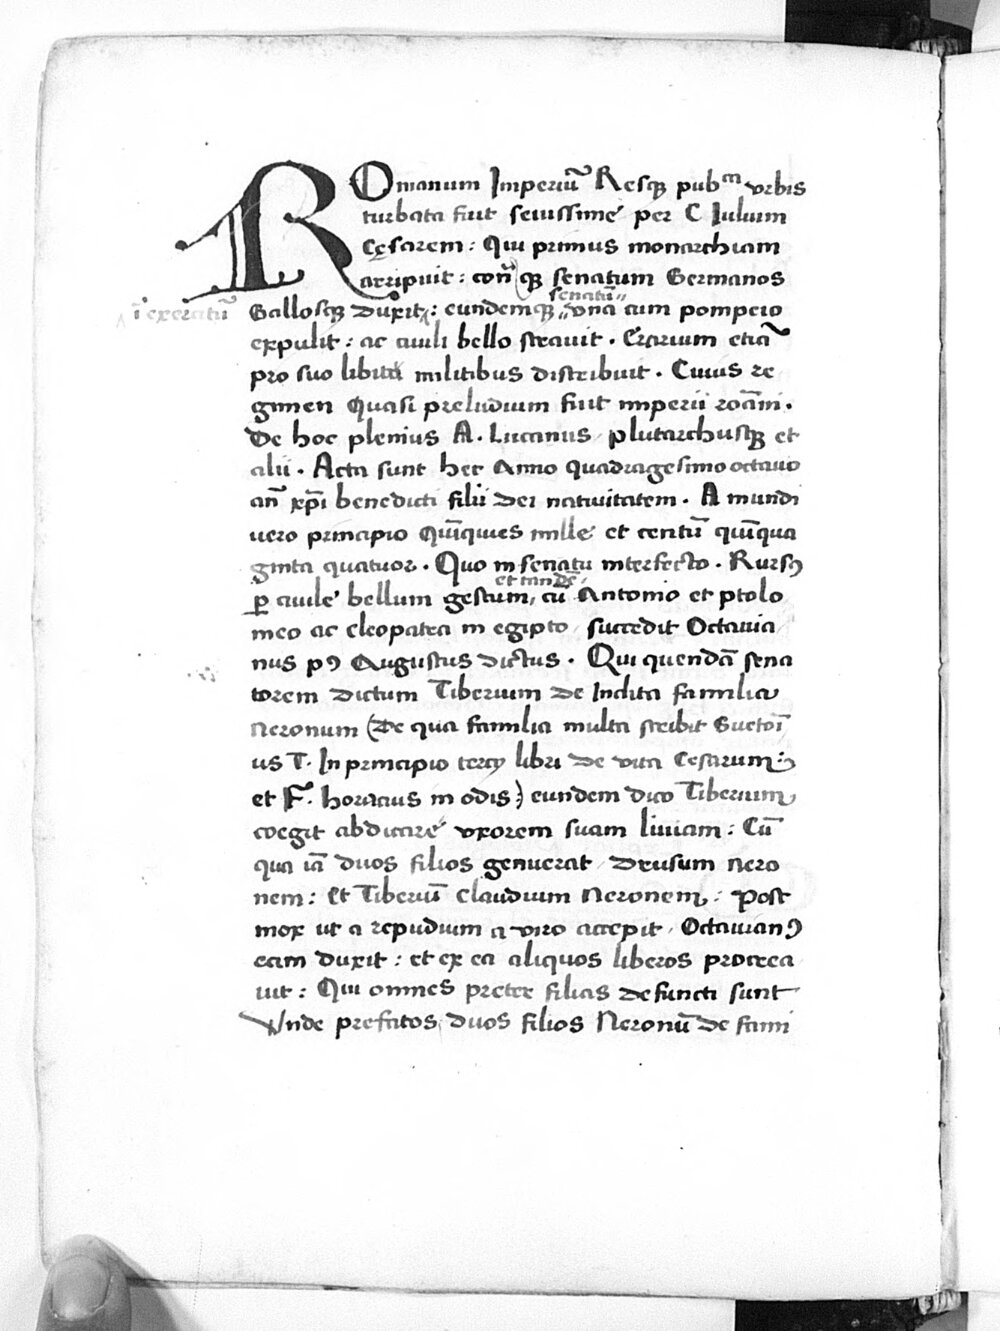 ROmanum Imperiū Resqȝ pubᶜᵃ vrbis
turbata fuit seuissime per C Iulium
Cęsarem : Qui primus monarchiam
arripuit : qȝ senatum Germanos
Gallosqȝ duxit : eundemqȝ senatū vna cum pompeio
expulit : ac ciuili bello strauit . Erarium etiā
pro suo libitu militibus distribuit . Cuius re
gimen Quasi preludium fuit imperii roāni .
De hoc plenius A . Lucanus / plutarchusqȝ et
alii . Acta sunt hec Anno quadragesimo octauo
añ xp̄i benedicti filii dei natiuitatem . A mundi
uero principio Quīquies mille et centū quīqua
ginta quatuor . Quo in senatu interfecto . Rursꝰ
ꝑ ciuile bellum gestum / et tandē cū Antonio et ptolo
meo ac cleopatra in egipto / succedit Octauia
nus pꝰ Augustus dictus . Qui quendā sena
torem dictum Tiberium de Indita familia
Neronum (De qua familia multa scribit Suetoī
us T . In principio tercy libri de vita Cesarum :
et F . horatius in odis) eundem dico Tiberium
coegit abdicare vxorem suam liuiam : Cū
qua iā duos filios genuerat / Drusum Nero
nem : et Tiberiū Claudium Neronem : Post
mox ut a repudium a viro accepit / Octauianꝰ
eam duxit : et ex ea aliquos liberos procrea
uit : Qui omnes preter filias defuncti sunt
Vnde prefatos duos filios Neronū de fami